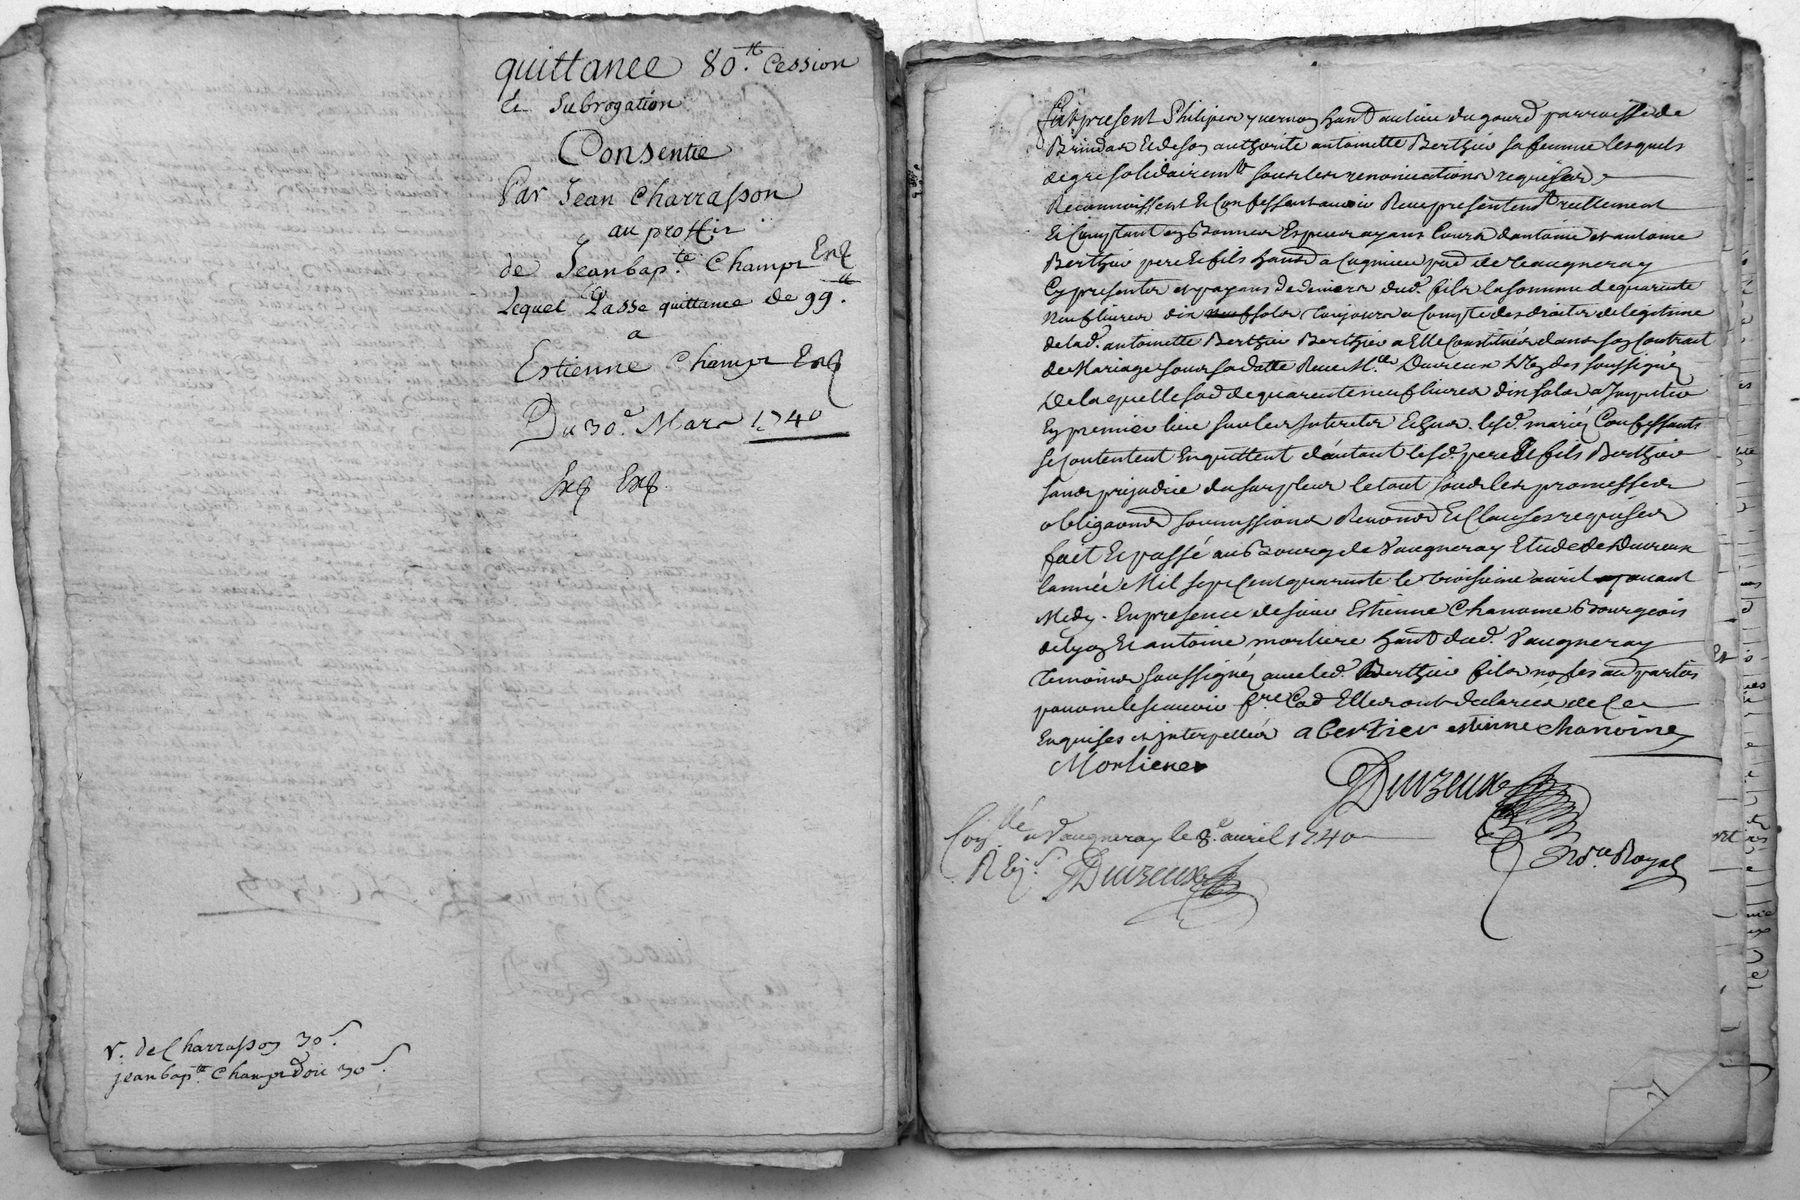 quittance 80.tt Cession
Et Subrogation
Consentie
Par Jean Charrasson
au proffit
de Jeanbap.te Champt Exp
Lequel Passe quittance de 99.tt
a
Estienne Champt Exp
Du 30.e Mars 1740
Exp Exp
v. de Charrasson 30.s
jeanbap.te Champt doit 30.s
fut present Philiper yvernoy habt au lieu du gourd parroisse de
Brindas Et de son authorité antoinette Berthier sa femme lesquels
de gré solidairemt sous les renonciations requises
Reconnoissent Et Confessent avoir Receu presentemt reellement
Et Comptant en Bonnes Especes ayans Cours dantoine et antoine
Berthier pere Et fils habts a parsse de Vaugneray
Cy presenter et payans de deniers dud. fils la somme de quarente
Neuf livres dix sols toujours a Compte des droits de legitime
de lad. antoinette Berthier Berthier a Elle Constitués dans son Contrat
de Mariage sous sa datte Receu M.e Duvzeux Nre soussigné
De laquelle so.e de quarente neuf livres dix sols a Imputer
En premier lieu sur les Interets lesd. mariés Confessants
se Contentent En quittent d'autant lesd. pere Et fils Berthier
sans prejudice du surplus le tout sous les promesses
obligaons soumissions Renons Et Clauses requises
fait Et passé au Bourg de Vaugneray Etude de Duvzeux
lannée Mil sept Cent quarente le troisieme avril avant
Midy. En presence de sieur Estienne Chanoine Bourgeois
de lyon Et antoine morliere habt dud. Vaugneray
temoins soussignés avec led. Berthier fils non les au. parties
pour ne le scavoir f.re Co.e Elles ont declarées de Ce
Enquises et interpellés aBertier estienne chanoine
Morliere
Duvzeux
Con.llé a Vaugneray le 8.e avril 1740
R Duvzeux
No.re Royal